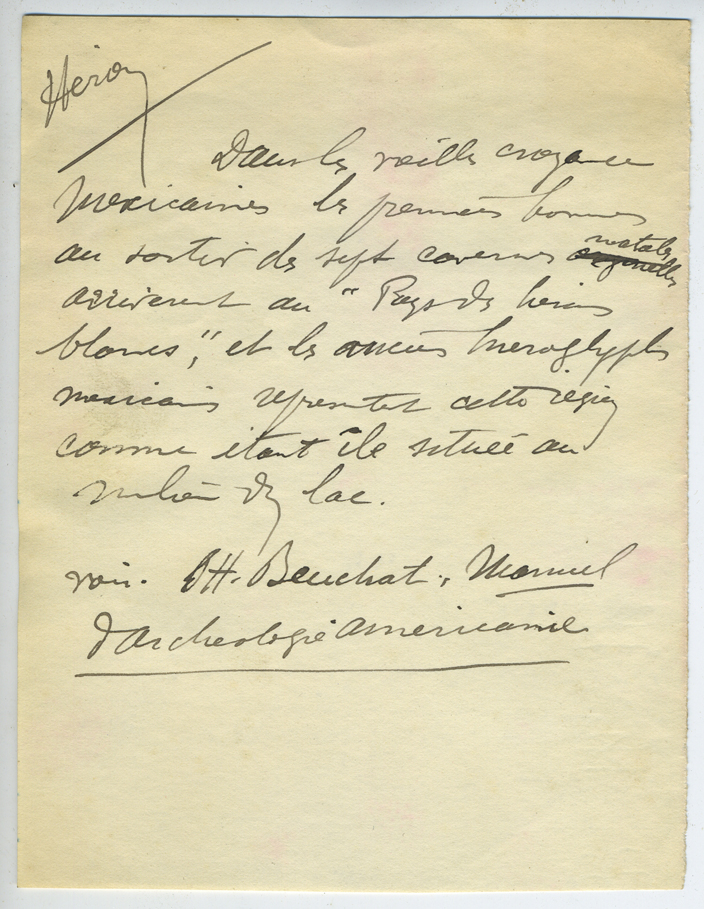 Héron
Dans les vieilles croyances
Mexicaines les premiers hommes
au sortir des sept cavernes natales
arrivèrent au "Pays des hérons
blancs", et les anciens hieroglyphes
mexicains représentent cette région
comme étant île située au
milieu d'un lac.
voir. H. Beuchat, Manuel
d'archeologie américaine